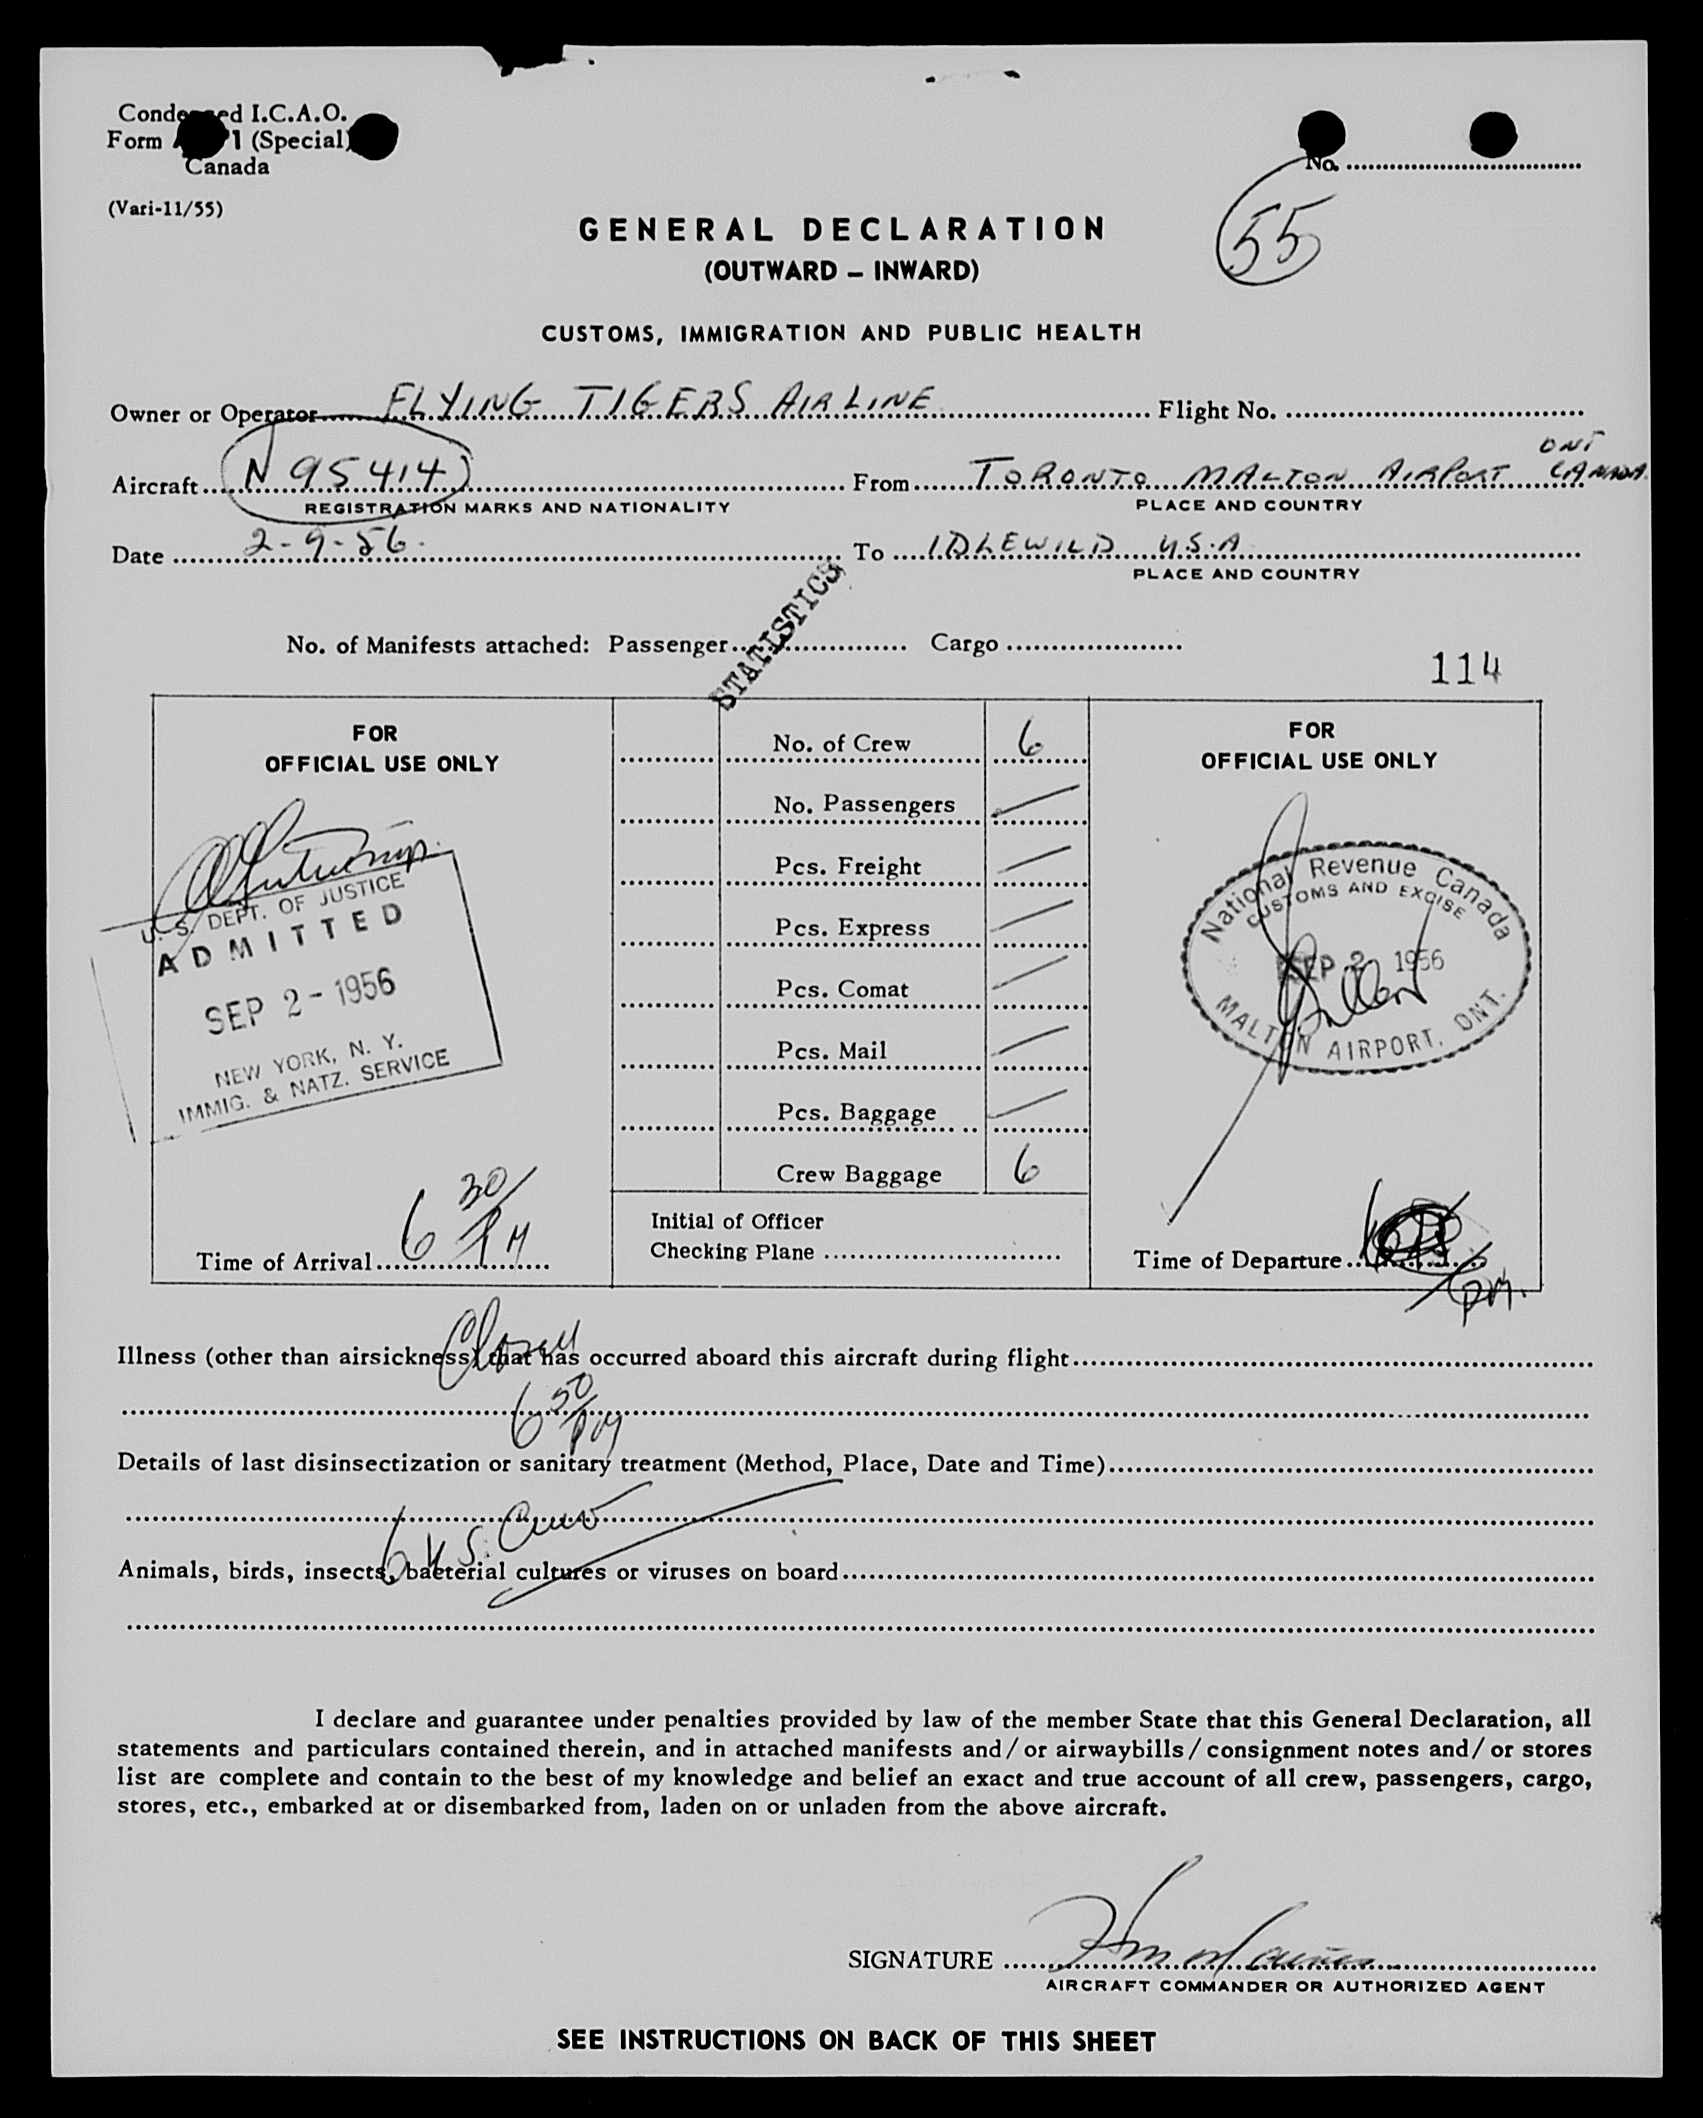 Condensed I.C.A.O.
Form 1 (Special)
Canada
(Vari-11/55)
No.
55
GENERAL DECLARATION
(OUTWARD – INWARD)
CUSTOMS, IMMIGRATION AND PUBLIC HEALTH
Owner or Operator FLYING TIGERS AIRLINE Flight No.
Aircraft N95414 From TORONTO MALTON AIRPORT ONT CANADA.
REGISTRATION MARKS AND NATIONALITY PLACE AND COUNTRY
Date 2-9-56. To IDLEWILD U.S.A.
PLACE AND COUNTRY
STATISTICS
No. of Manifests attached: Passenger Cargo
114
FOR
OFFICIAL USE ONLY
U. S. DEPT. OF JUSTICE
ADMITTED
SEP 2 - 1956
NEW YORK, N. Y.
IMMIG. & NATZ. SERVICE
Time of Arrival 6 30/PM
No. of Crew 6
No. Passengers
Pcs. Freight
Pcs. Express
Pcs. Comat
Pcs. Mail
Pcs. Baggage
Crew Baggage 6
Initial of Officer
Checking Plane
FOR
OFFICIAL USE ONLY
National Revenue Canada
CUSTOMS AND EXCISE
SEP 2 1956
MALTON AIRPORT, ONT.
Time of Departure pm.
Illness (other than airsickness) that has occurred aboard this aircraft during flight
6 50/PM
Details of last disinsectization or sanitary treatment (Method, Place, Date and Time)
6 U.S. Crew
Animals, birds, insects, bacterial cultures or viruses on board
I declare and guarantee under penalties provided by law of the member State that this General Declaration, all
statements and particulars contained therein, and in attached manifests and/or airwaybills/consignment notes and/or stores
list are complete and contain to the best of my knowledge and belief an exact and true account of all crew, passengers, cargo,
stores, etc., embarked at or disembarked from, laden on or unladen from the above aircraft.
SIGNATURE
AIRCRAFT COMMANDER OR AUTHORIZED AGENT
SEE INSTRUCTIONS ON BACK OF THIS SHEET